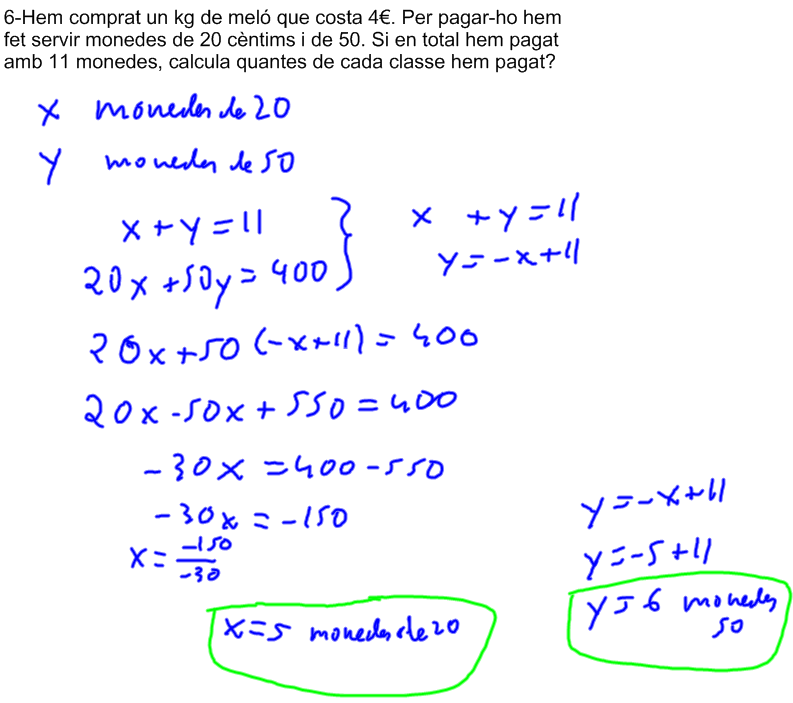 6-Hem comprat un kg de meló que costa 4€. Per pagar-ho hem
fet servir monedes de 20 cèntims i de 50. Si en total hem pagat
amb 11 monedes, calcula quantes de cada classe hem pagat?
x monedes de 20
y monedes de 50
x + y = 11
20x + 50y = 400
x + y = 11
y = -x + 11
20x + 50 (-x + 11) = 400
20x - 50x + 550 = 400
-30x = 400 - 550
-30x = -150
x = -150/-30
x = 5 monedes de 20
y = -x + 11
y = -5 + 11
y = 6 monedes
50